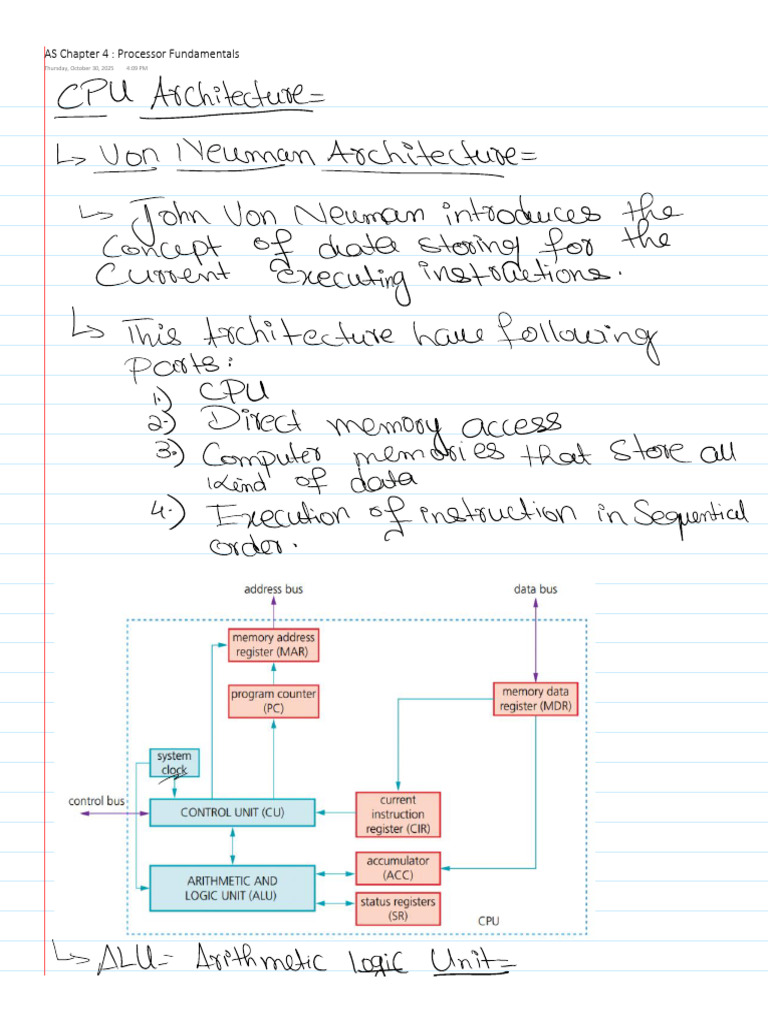 AS Chapter 4 : Processor Fundamentals
Thursday, October 30, 2025 4:09 PM
CPU Architecture=
↳ Von Neuman Architecture=
↳ John Von Neuman introduces the
Concept of data storing for the
Current Executing instructions.
↳ This Architecture have following
Parts:
1.) CPU
2.) Direct memory access
3.) Computer memories that store all
kind of data
4.) Execution of instruction in Sequential
order.
address bus
data bus
memory address
register (MAR)
program counter
(PC)
memory data
register (MDR)
system
clock
control bus
CONTROL UNIT (CU)
current
instruction
register (CIR)
ARITHMETIC AND
LOGIC UNIT (ALU)
accumulator
(ACC)
status registers
(SR)
CPU
↳ ALU= Arithmetic Logic Unit=